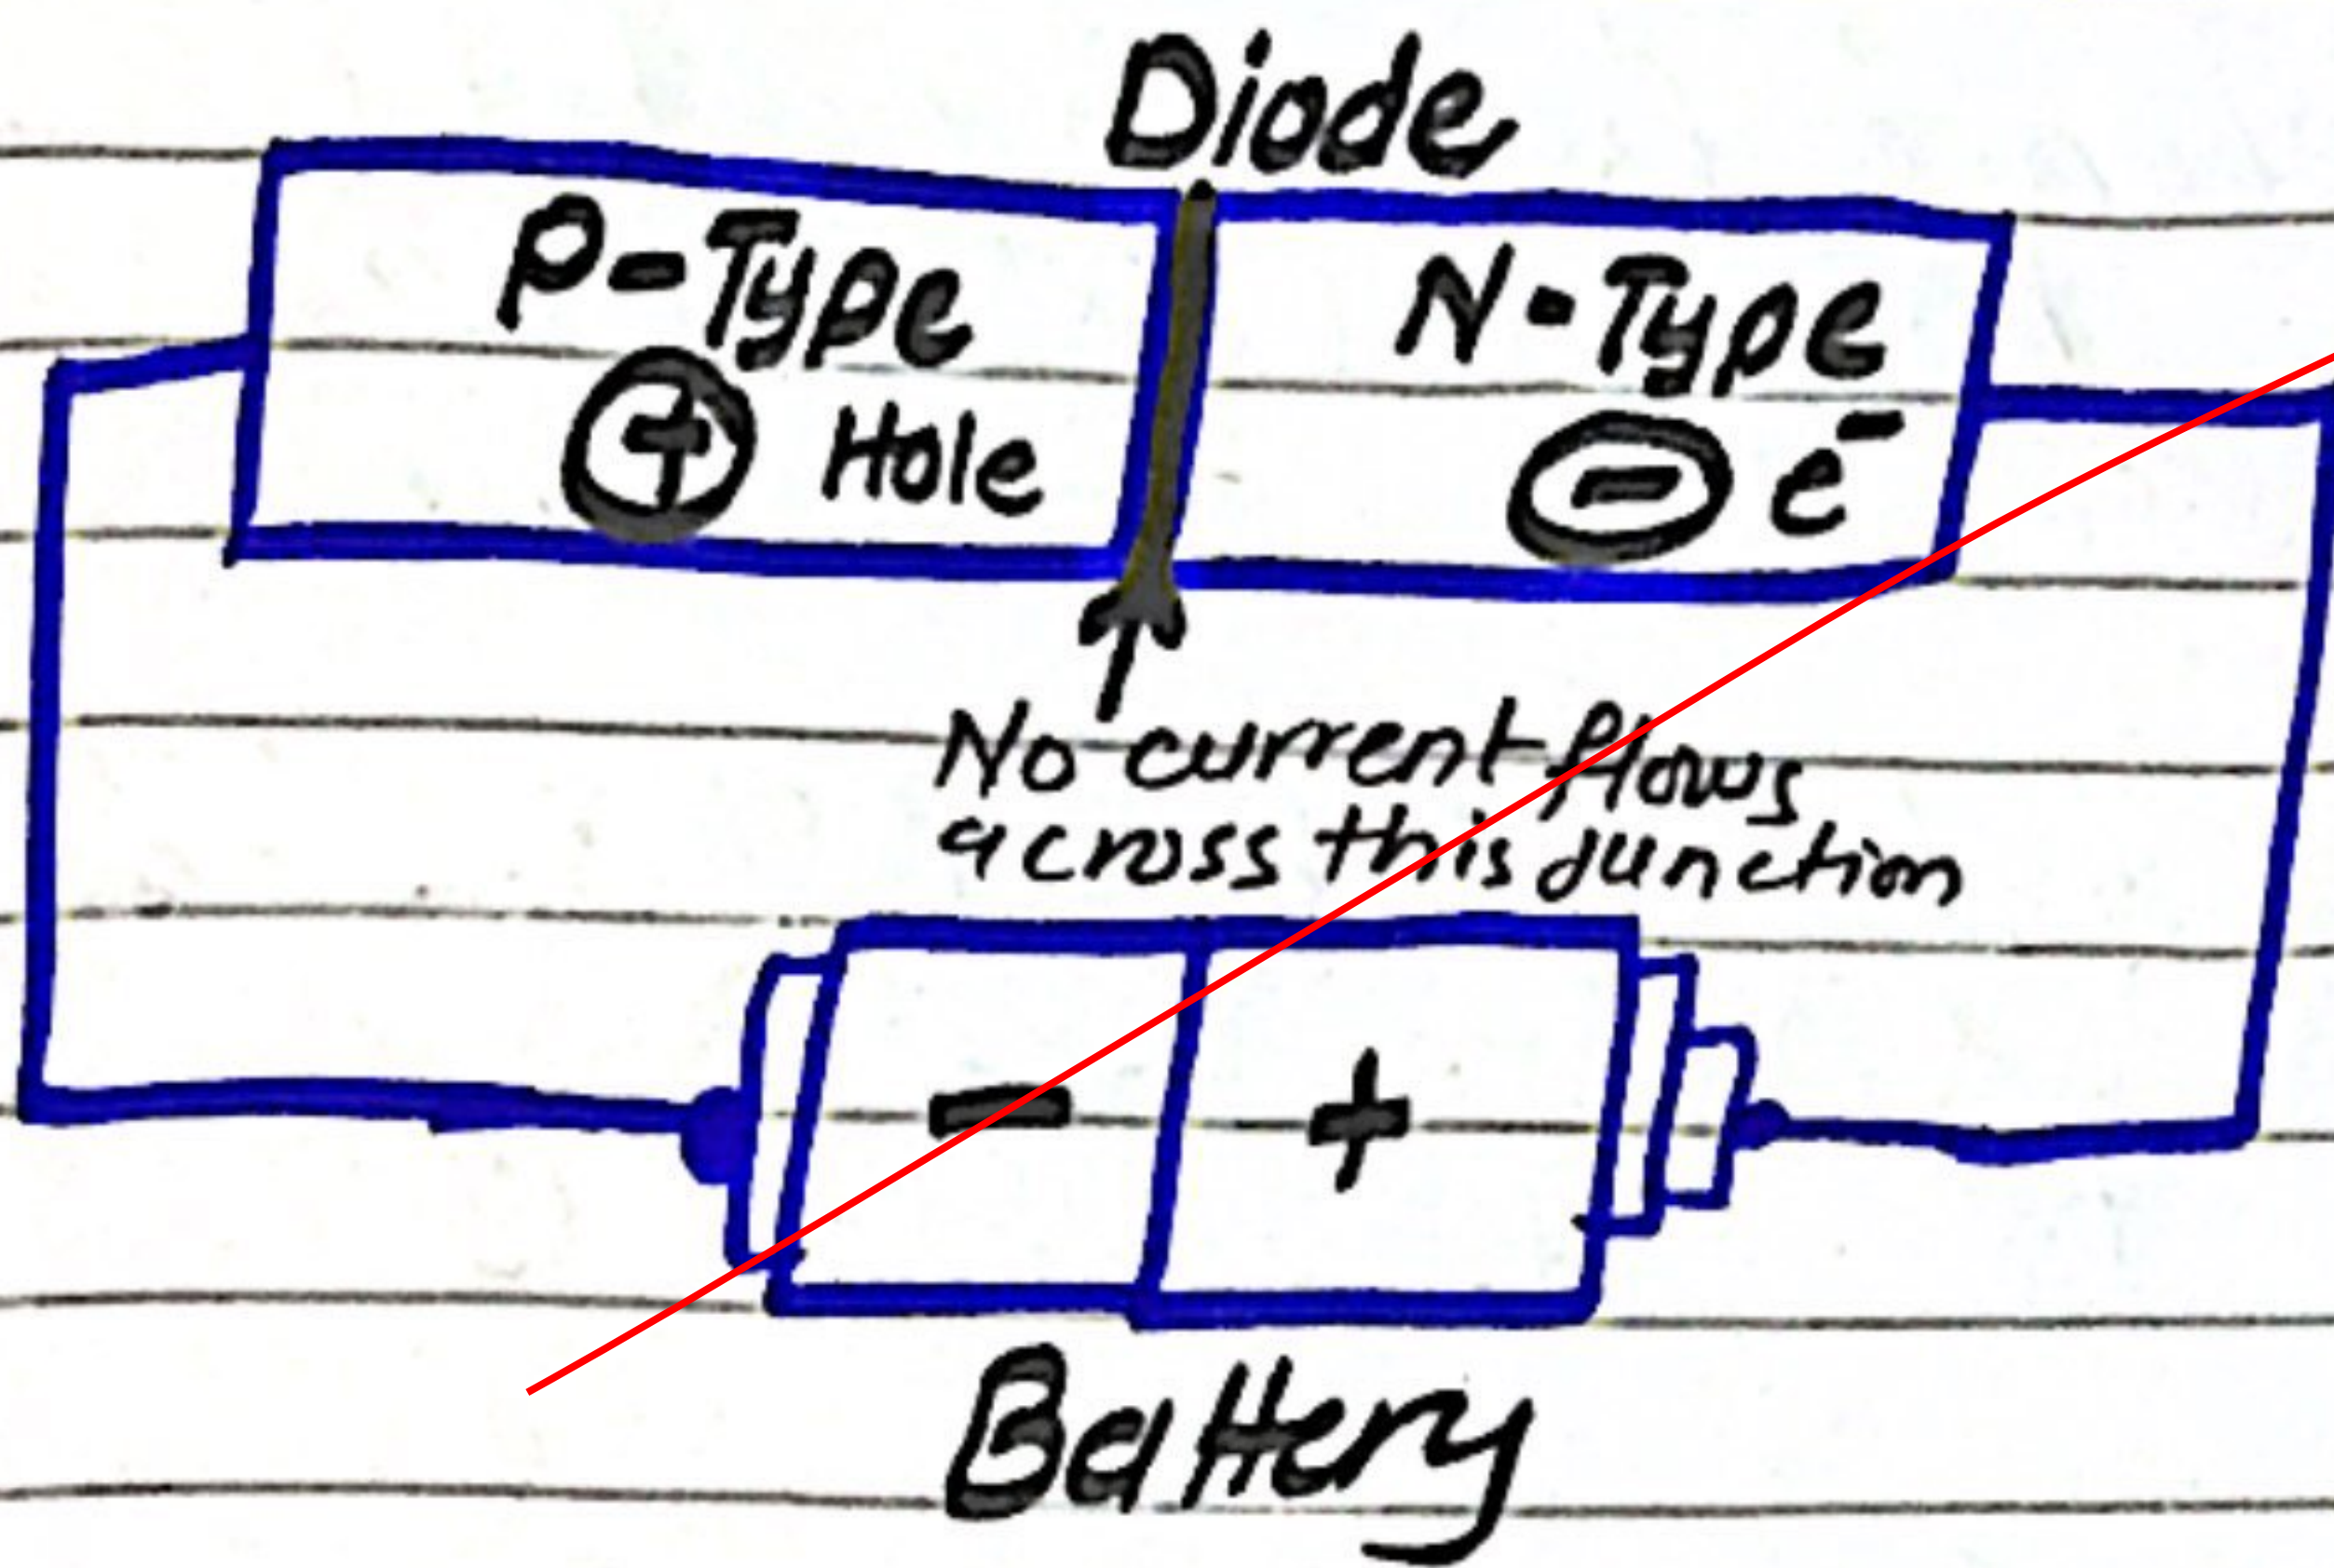 Diode
P-Type
N-Type
+ Hole
- e⁻
No current flows
across this junction
- +
Battery